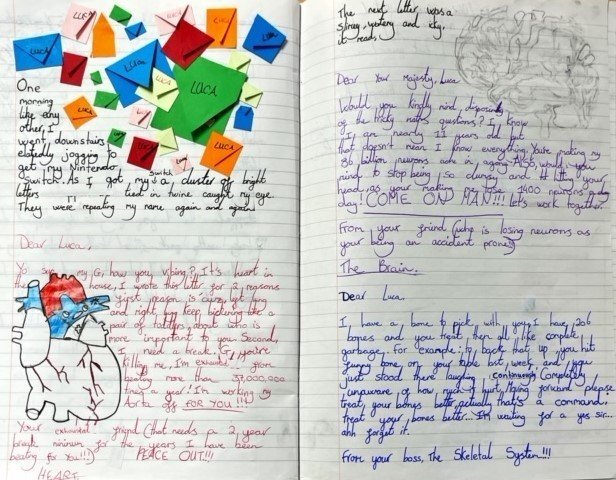 LUCA
LUCA
LUCA
LUCA
LUCA
LUCA
LUCA
LUCA
LUCA
One
morning
like any
other, I
went downstairs
elatedly jogging to
get my Nintendo
Switch. As I got my switch a cluster of bright
letters tied in twine caught my eye.
They were repeating my name again and again
Dear Luca,
Yo my G, how you vibing? It's heart in
the house, I wrote this letter for 2 reasons
first reason is cause left lung
and right lung keep bickering like a
pair of toddlers about who is
more important to you. Second,
I need a break, you're
killing me, I'm exhausted from
beating more than 37,000,000
times a year! I'm working my
Aorta off FOR YOU!!!
Your exhausted friend (that needs a 2 year
break minimum for the years I have been
beating for You!!!) PEACE OUT!!!
HEART.
The next letter was a
slimy, watery and icky,
it read,
Dear Your Majesty, Luca
Would you kindly mind, disposing
of the tricky maths questions? I know
I am nearly 11 years old but
that doesn't mean I know everything. You're making my
86 billion neurons ache in agony. Also, would you
mind to stop being so clumsy and hitting your
head, as your making me lose 1400 neurons a
day! COME ON MAN!!! let's work together.
From your friend (who is losing neurons as
your being an accident prone)
The Brain.
Dear Luca,
I have a bone to pick with you, I have 206
bones and you treat them all like complete
garbage, for example: to back that up, you hit
funny bone on your table last week and you
just stood there laughing continuously completely
unaware of how much it hurt, going forward please
treat your bones better, actually that's a command.
Treat your bones better... I'm waiting for a yes sir...
ahh forget it.
From your boss, The Skeletal System!!!